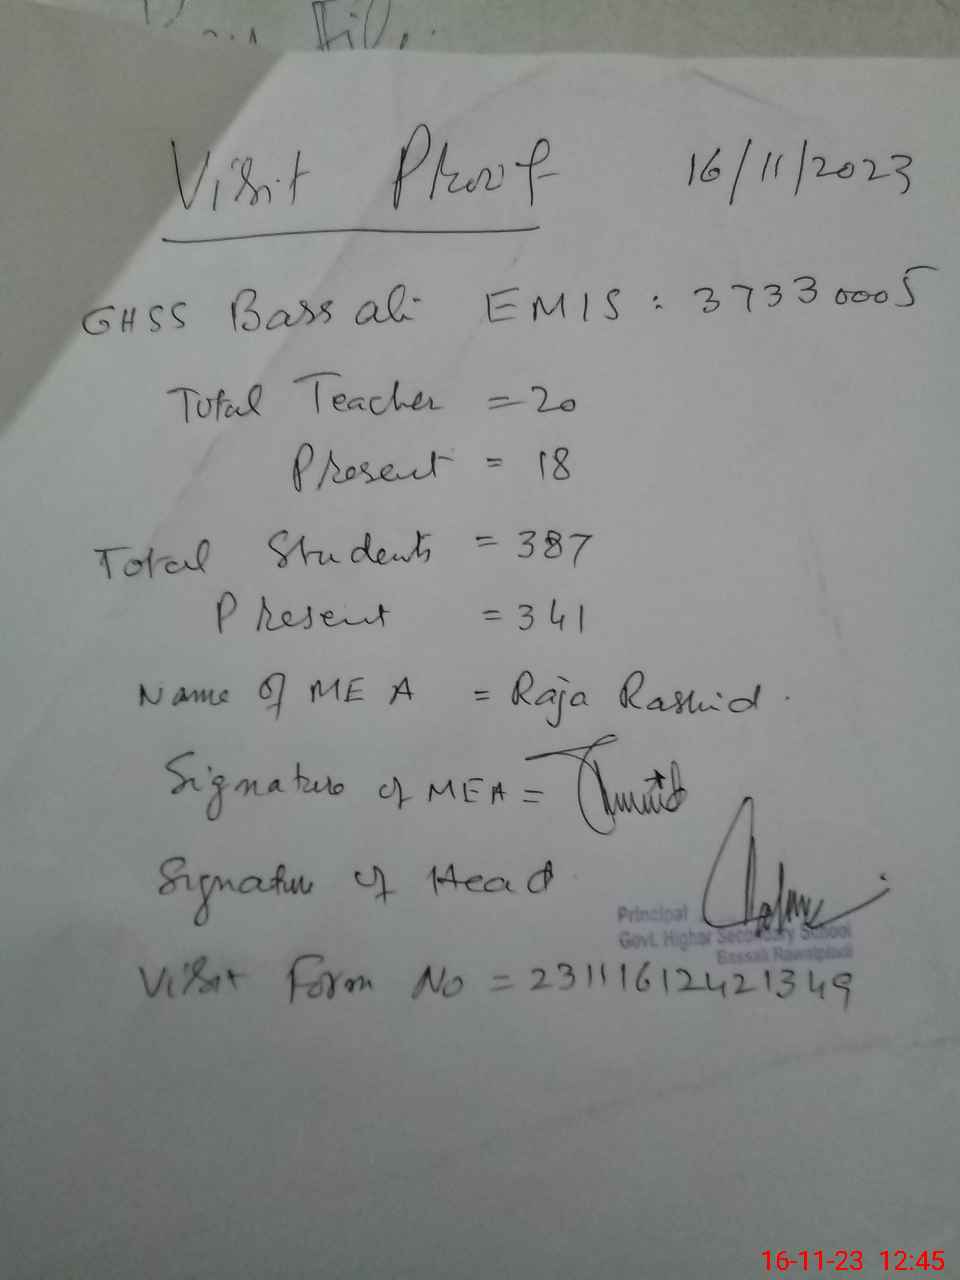 Visit Proof 16/11/2023
GHSS Bassali EMIS: 37330005
Total Teacher = 20
Present = 18
Total Students = 387
Present = 341
Name of MEA = Raja Rashid.
Signature of MEA =
Signature of Head
Principal
Govt. Higher Secondary School
Bassali Rawalpindi
Visit Form No = 23111612421349
16-11-23 12:45